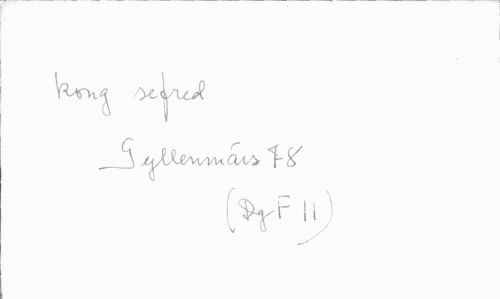 kong sefred
Gyllenmärs 78
(DgF 11)